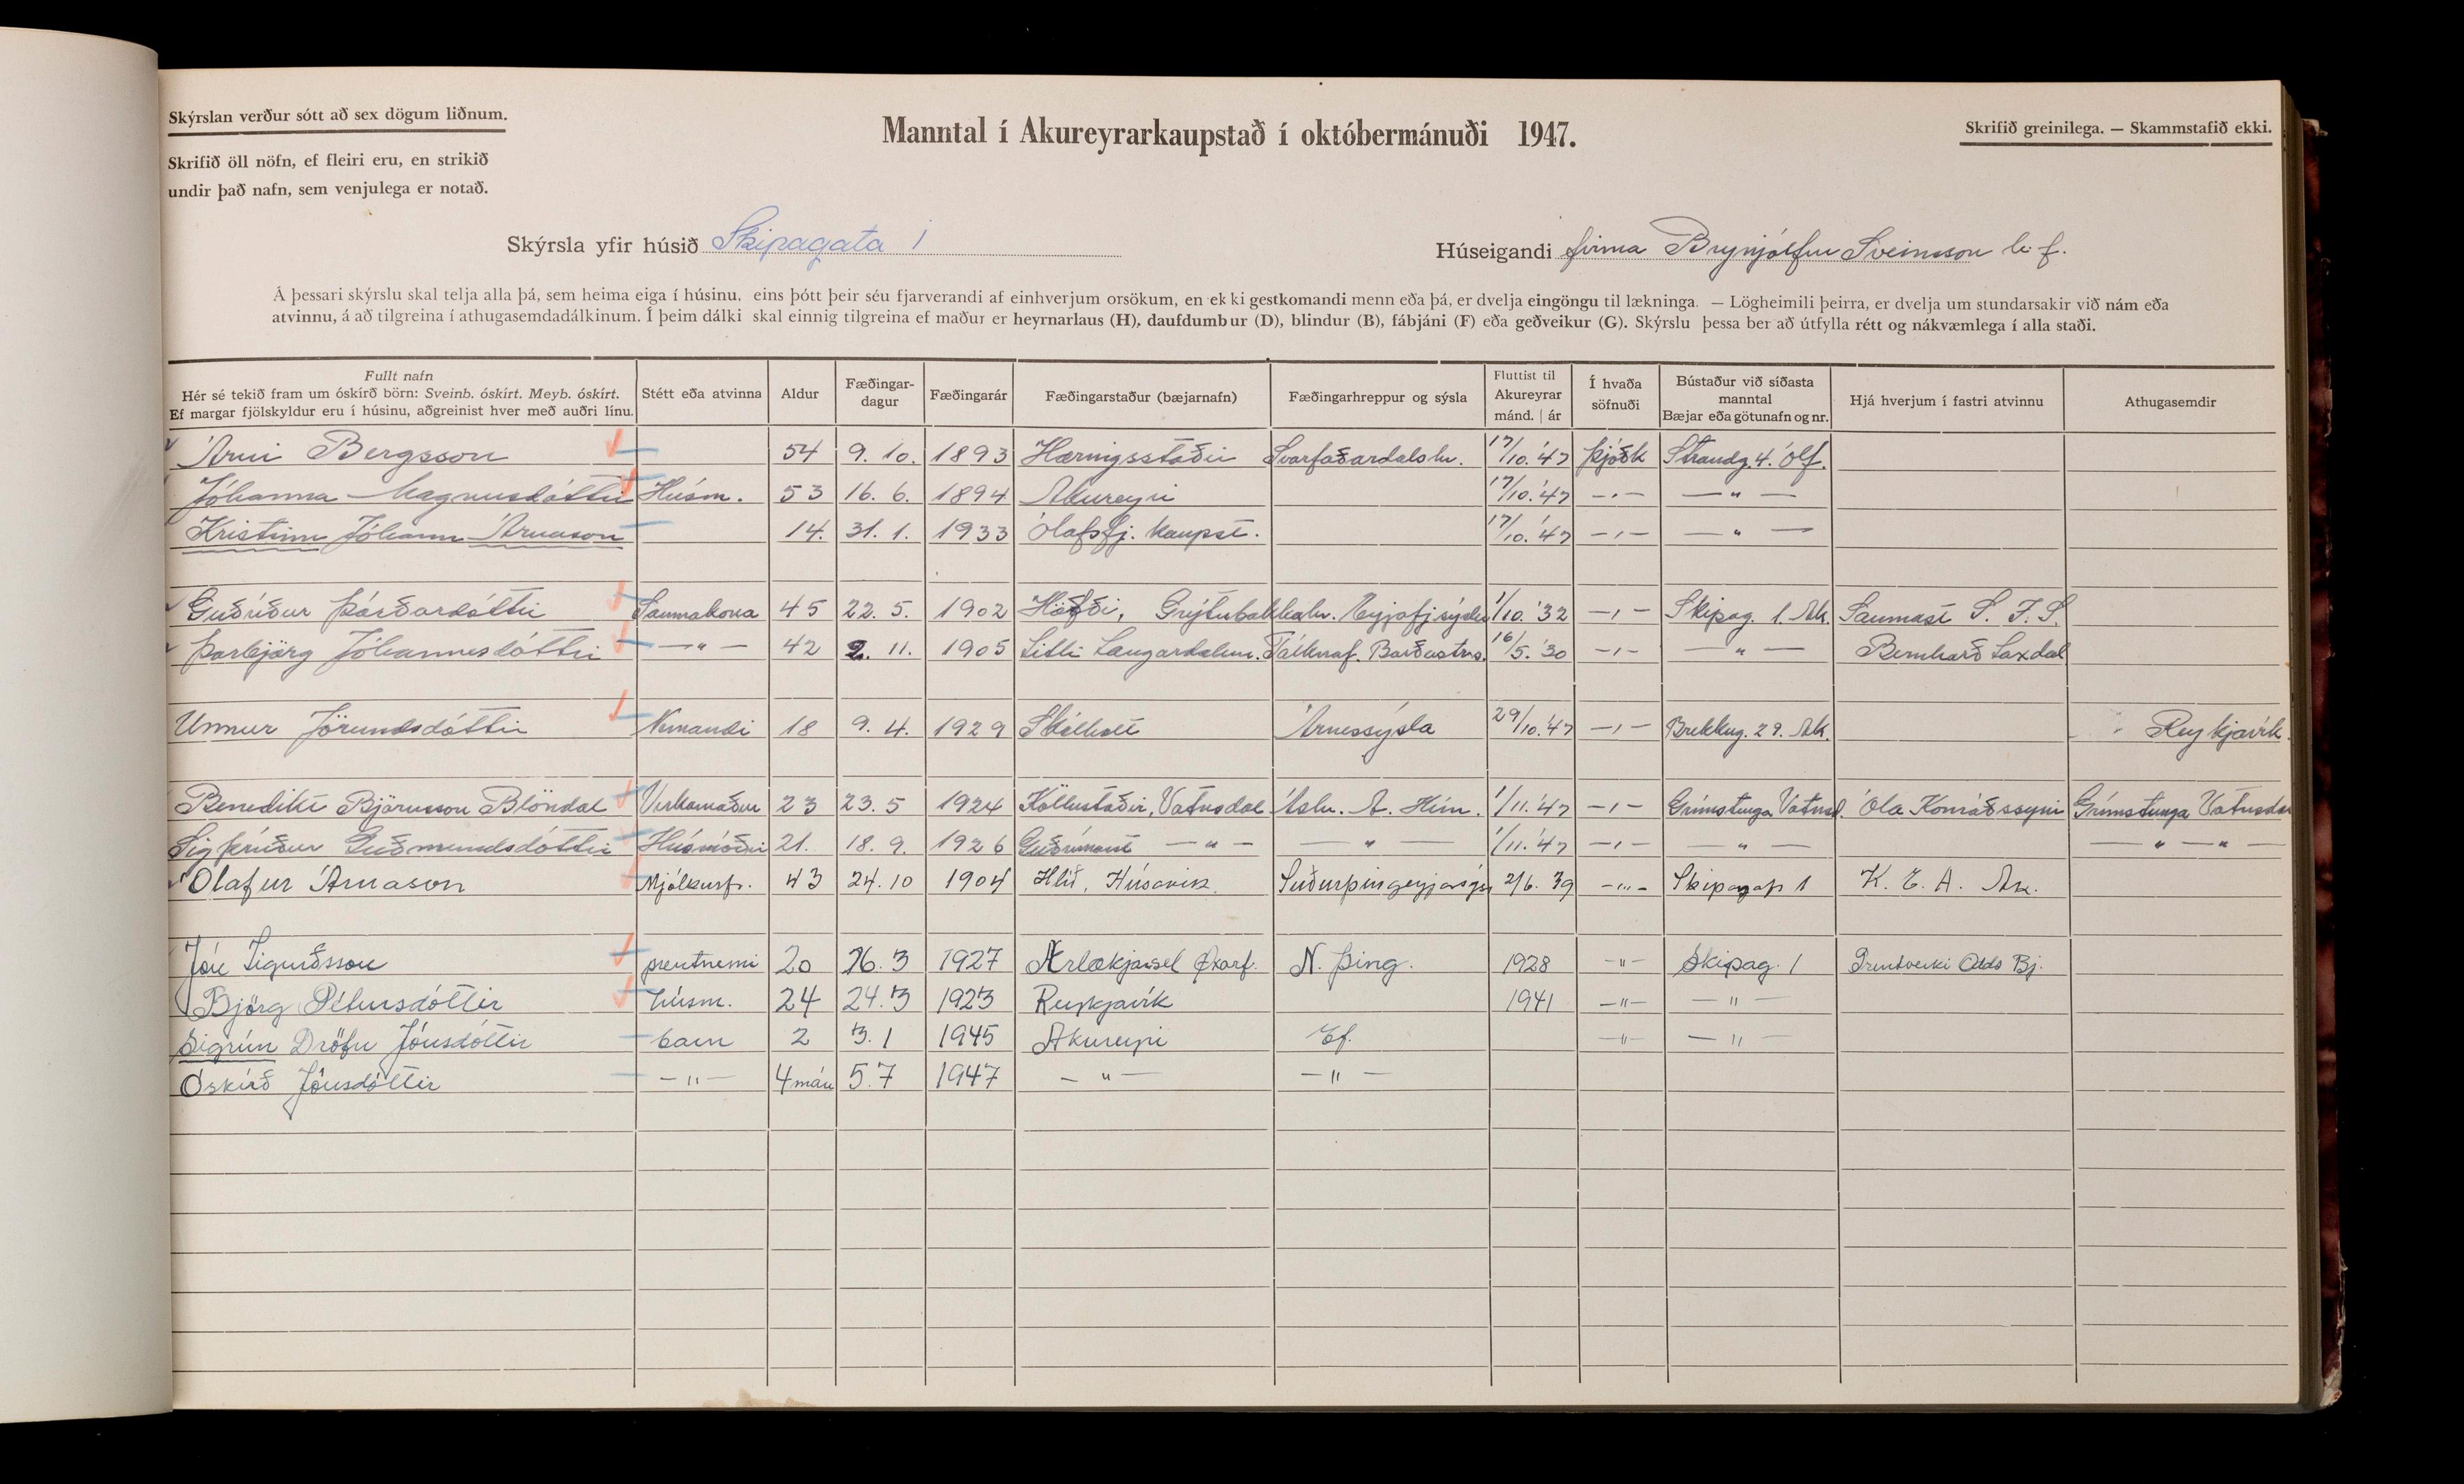 Skýrslan verður sótt að sex dögum liðnum.
Skrifið öll nöfn, ef fleiri eru, en strikið
undir það nafn, sem venjulega er notað.
Manntal í Akureyrarkaupstað í októbermánuði 1947.
Skrifið greinilega. — Skammstafið ekki.
Skýrsla yfir húsið Skipagata 1
Húseigandi firma Brynjólfur Sveinsson h. f.
Á þessari skýrslu skal telja alla þá, sem heima eiga í húsinu, eins þótt þeir séu fjarverandi af einhverjum orsökum, en ekki gestkomandi menn eða þá, er dvelja eingöngu til lækninga. — Lögheimili þeirra, er dvelja um stundarsakir við nám eða
atvinnu, á að tilgreina í athugasemdadálkinum. Í þeim dálki skal einnig tilgreina ef maður er heyrnarlaus (H), daufdumbur (D), blindur (B), fábjáni (F) eða geðveikur (G). Skýrslu þessa ber að útfylla rétt og nákvæmlega í alla staði.
Fullt nafn Hér sé tekið fram um óskírð börn: Sveinb. óskírt. Meyb. óskírt. Ef margar fjölskyldur eru í húsinu, aðgreinist hver með auðri línu. Stétt eða atvinna Aldur Fæðingar-dagur Fæðingarár Fæðingarstaður (bæjarnafn) Fæðingarhreppur og sýsla Fluttist til Akureyrar mánd. | ár Í hvaða söfnuði Bústaður við síðasta manntal Bæjar eða götunafn og nr. Hjá hverjum í fastri atvinnu Athugasemdir
Árni Bergsson 54 9. 10. 1893 Hæringsstaðir Svarfaðardalshr. 17/10.'47 Þjóðk Strandg. 4. Ólf.
Jóhanna Magnúsdóttir Húsm. 53 16. 6. 1894 Akureyri 17/10.'47 —〃— —〃—
Kristinn Jóhann Árnason 14. 31. 1. 1933 Ólafsfj. kaupst. 17/10.'47 —〃— —〃—
Guðríður Þórðardóttir Saumakona 45 22. 5. 1902 Höfði, Grýtubakkahr. Eyjafj.sýslu 1/10.'32 —〃— Skipag. 1. Ak. Saumast S. Í. S.
Þorbjörg Jóhannesdóttir —〃— 42 2. 11. 1905 Litli Laugardalur. Tálknaf. Barðastrs. 16/5.'30 —〃— —〃— Bernharð Laxdal
Unnur Jörundsdóttir Nemandi 18 9. 4. 1929 Skálholt Árnessýsla 29/10.'47 —〃— Brekkug. 29. Ak. Reykjavík.
Benedikt Björnsson Blöndal Verkamaður 23 23. 5 1924 Vatnsdal Áshr. A. Hún. 1/11.'47 —〃— Grímstunga Vatnsd. Óla Konráðssyni Grímstunga Vatnsdal
Sigþrúður Guðmundsdóttir Húsmóðir 21. 18. 9. 1926 —〃— —〃— 1/11.'47 —〃— —〃— —〃— —〃—
Ólafur Árnason Mjólkurfr. 43 24. 10 1904 Hlíð, Húsavík. Suðurþingeyjarsýs 2/6. 39 —〃— Skipagat 1 K. E. A. Ak.
Jón Sigurðsson prentnemi 20 26. 3 1927 Ærlækjarsel Öxarf. N. Þing. 1928 —〃— Skipag. 1 Prentverki Odds Bj.
Björg Pétursdóttir húsm. 24 24. 3 1923 Reykjavík 1941 —〃— —〃—
Sigrún Dröfn Jónsdóttir barn 2 3. 1 1945 Akureyri Ef. —〃— —〃—
Óskírð Jónsdóttir —〃— 4 mán 5. 7 1947 —〃— —〃—